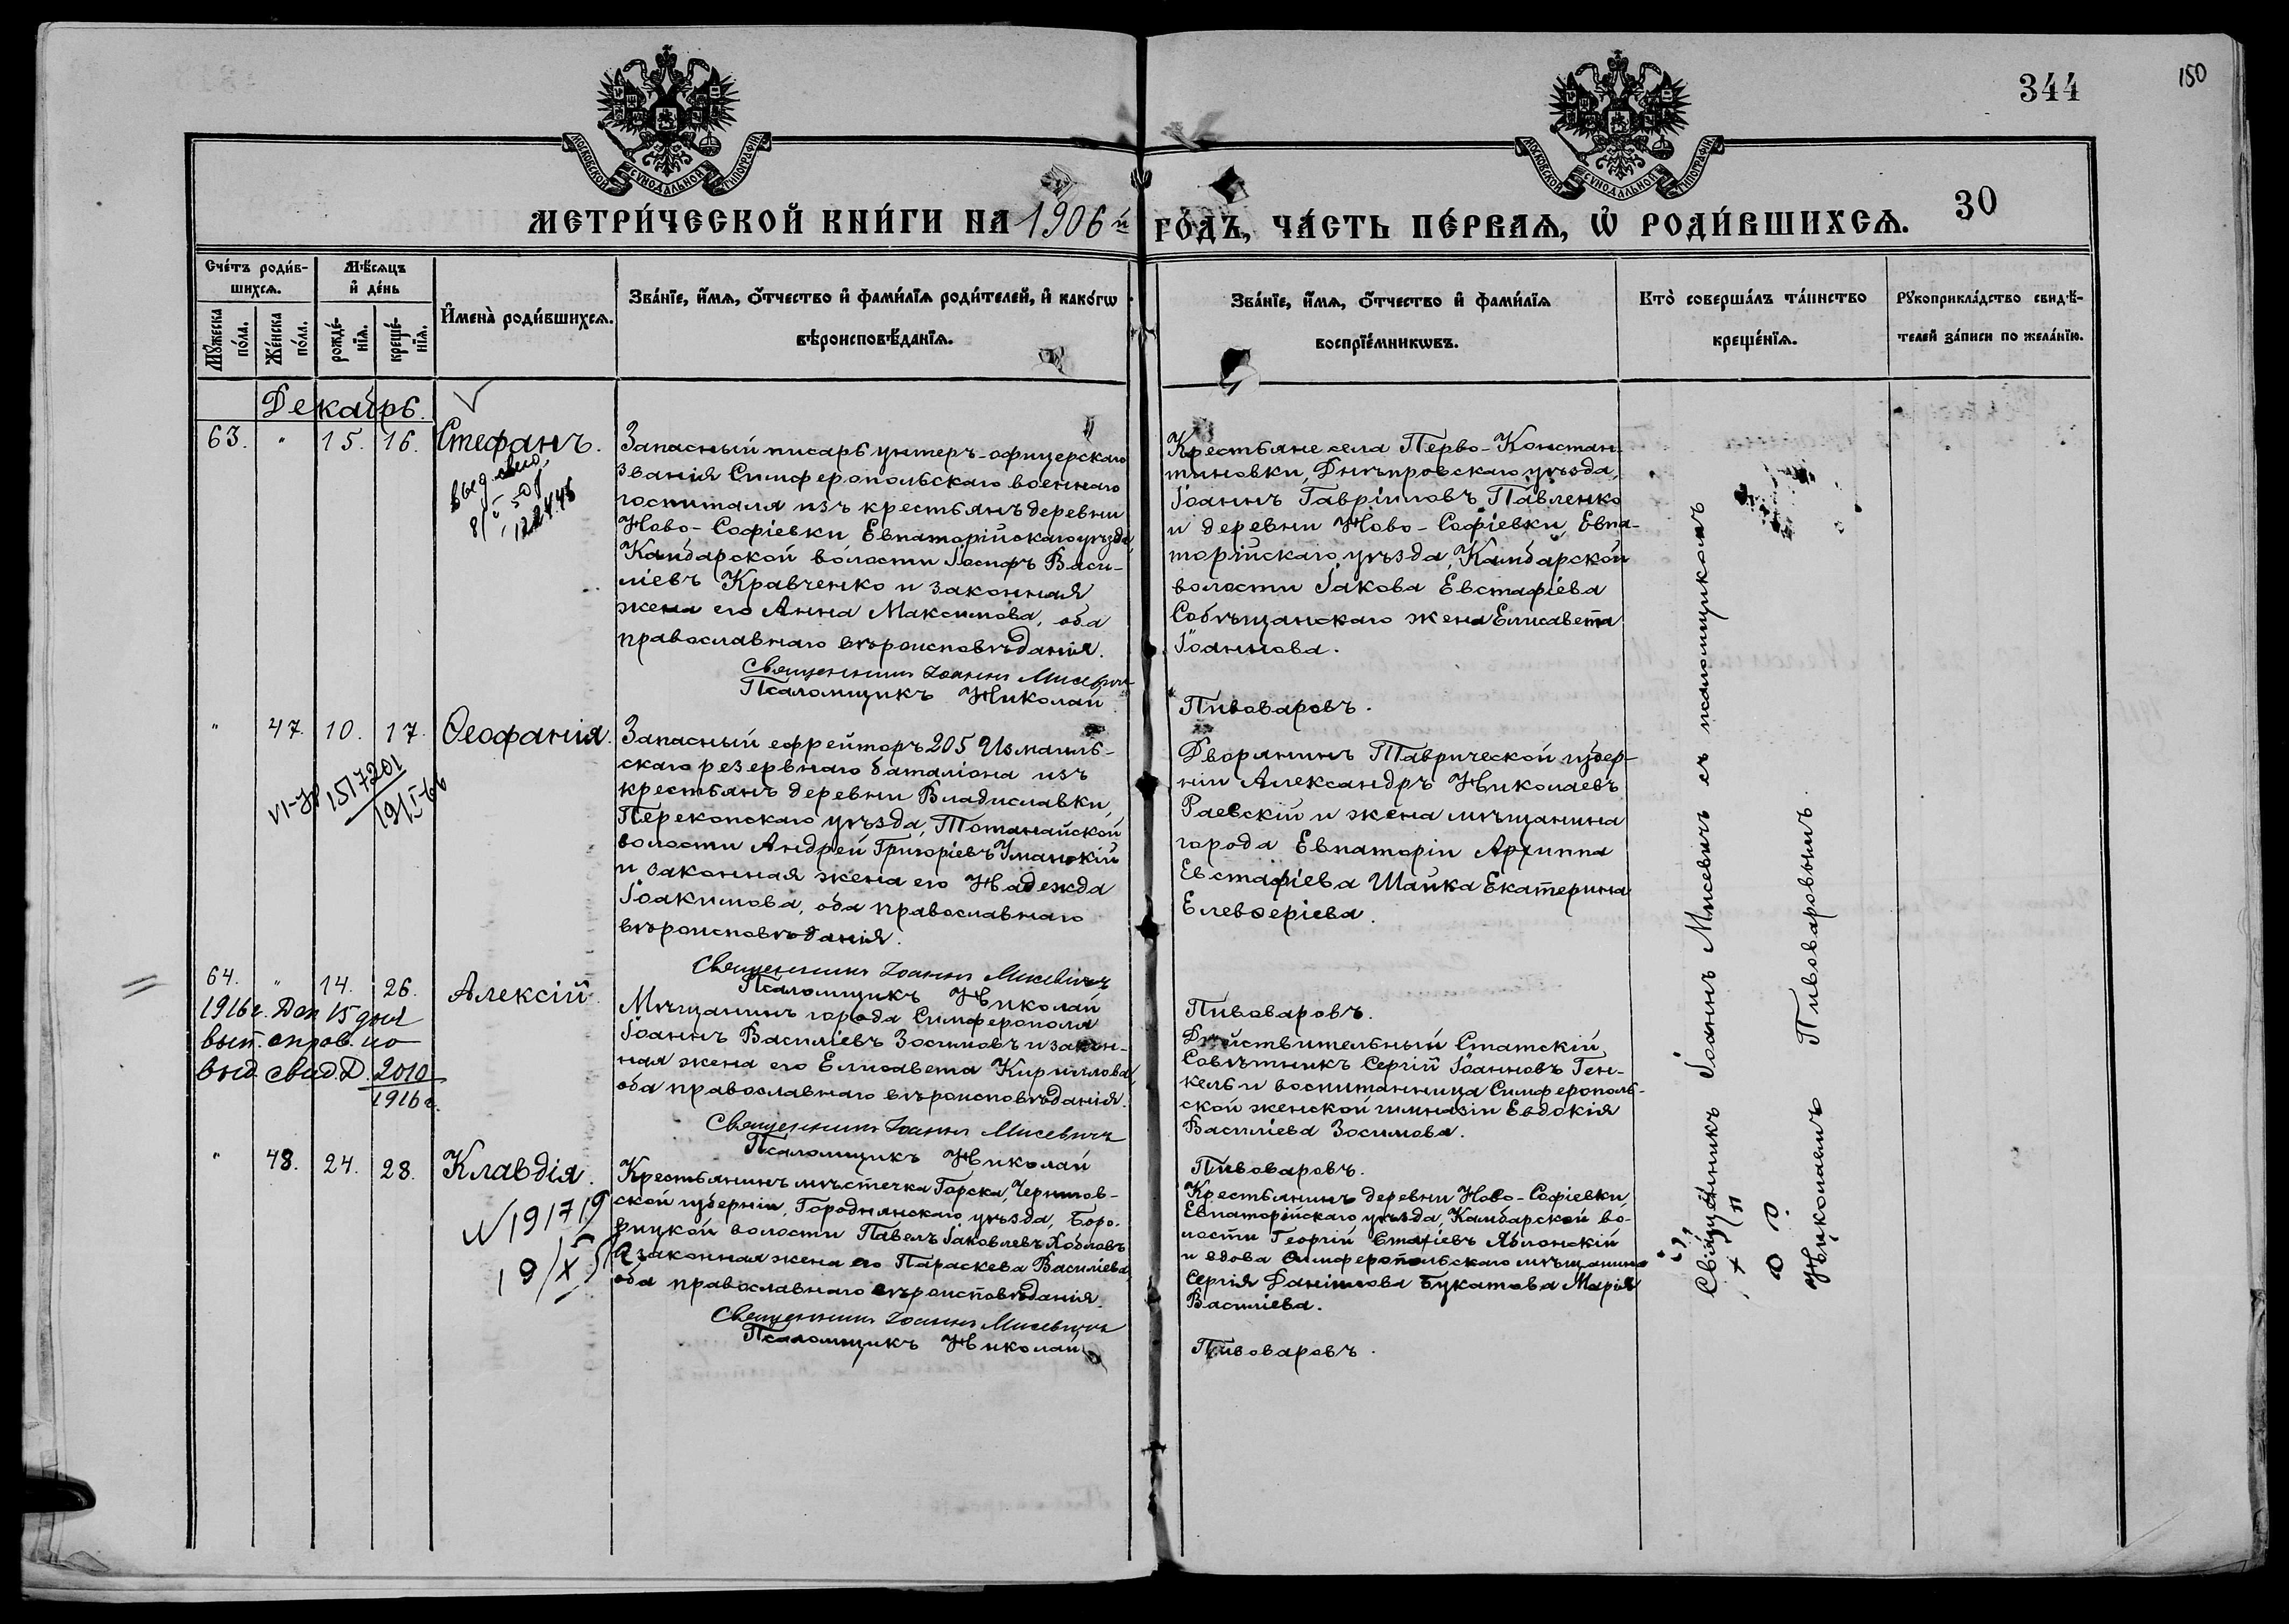 344
150
МОСКОВСКОЙ СѴНОДАЛЬНОЙ ТИПОГРАФІИ
МОСКОВСКОЙ СѴНОДАЛЬНОЙ ТИПОГРАФІИ
МЕТРИ́ЧЕСКОЙ КНИ́ГИ НА 1906 й ГО́ДЪ, ЧА́СТЬ ПЕ́РВАѦ, Ѡ҆ РОДИ́ВШИХСѦ. 30
Сче́тъ роди́в-
шихсѧ.
Мꙋ́жеска
по́ла.
Же́нска
по́ла.
Мѣ́сѧцъ
и҆ де́нь
рожде́-
нїѧ.
креще́-
нїѧ.
И҆мена̀ роди́вшихсѧ.
Зва́нїе, и҆́мѧ, ѻ҆́тчество и҆ фами́лїѧ роди́телей, и҆ како́гѡ
вѣроисповѣ́данїѧ.
Зва́нїе, и҆́мѧ, ѻ҆́тчество и҆ фами́лїѧ
воспрїе́мникѡвъ.
Кто̀ соверша́лъ та́инство
креще́нїѧ.
Рꙋкоприкла́дство свидѣ́-
телей за́писи по жела́нїю.
Декабрь.
63. " 15. 16. Стефанъ.
Запасный писарь унтеръ-офицерскаго
званія Симферопольскаго военнаго
госпиталя изъ крестьянъ деревни
Ново-Софіевки Евпаторійскаго уѣзда,
Камбарской волости Іосифъ Васи-
ліевъ Кравченко и законная
жена его Анна Максимова, оба
православнаго вѣроисповѣданія.
Священникъ Іоаннъ Мисевичъ
Псаломщикъ Николай
Крестьяне села Перво-Констан-
тиновки, Днѣпровскаго уѣзда,
Іоаннъ Гавріиловъ Павленко
и деревни Ново-Софіевки, Евпа-
торійскаго уѣзда, Камбарской
волости Іакова Евстафіева
Собѣщанскаго жена Елисавета
Іоаннова.
Пивоваровъ.
" 47. 10. 17. Ѳеофанія.
1517201
Запасный ефрейторъ 205 Измаиль-
скаго резервнаго баталіона изъ
крестьянъ деревни Владиславки,
Перекопскаго уѣзда, Тотанайской
волости Андрей Григоріевъ Уманскій
и законная жена его Надежда
Іоакимова, оба православнаго
вѣроисповѣданія.
Священникъ Іоаннъ Мисевичъ
Псаломщикъ Николай
Дворянинъ Таврической губер-
ніи Александръ Николаевъ
Раевскій и жена мѣщанина
города Евпаторіи Архиппа
Евстафіева Шайка Екатерина
Елевѳеріева.
Пивоваровъ.
64. " 14. 26. Алексій.
1916 г. Дек 15 дня
вып. справ. но
выд. свид. Д. 2010
1916 г.
Мѣщанинъ города Симферополя
Іоаннъ Василіевъ Зосимовъ и закон-
ная жена его Елисавета Кириллова,
оба православнаго вѣроисповѣданія.
Священникъ Іоаннъ Мисевичъ
Псаломщикъ Николай
Дѣйствительный Статскій
Совѣтникъ Сергій Іоанновъ Ген-
кель и воспитанница Симферополь-
ской женской гимназіи Евдокія
Василіева Зосимова.
Пивоваровъ.
" 48. 24. 28. Клавдія.
N 191719
Крестьянинъ мѣстечка Горска, Чернигов-
ской губерніи, Городнянскаго уѣзда, Боро-
вицкой волости Павелъ Іаковлевъ Хобловъ
и законная жена его Параскева Василіева,
оба православнаго вѣроисповѣданія.
Священникъ Іоаннъ Мисевичъ
Псаломщикъ Николай
Крестьянинъ деревни Ново-Софіевки
Евпаторійскаго уѣзда, Камбарской во-
лости Георгій Стахіевъ Яблонскій
и вдова Симферопольскаго мѣщанина
Сергія Даніилова Букатова Марія
Василіева.
Пивоваровъ.
Священникъ Іоаннъ Мисевичъ съ псаломщикомъ
Николаемъ Пивоваровымъ.